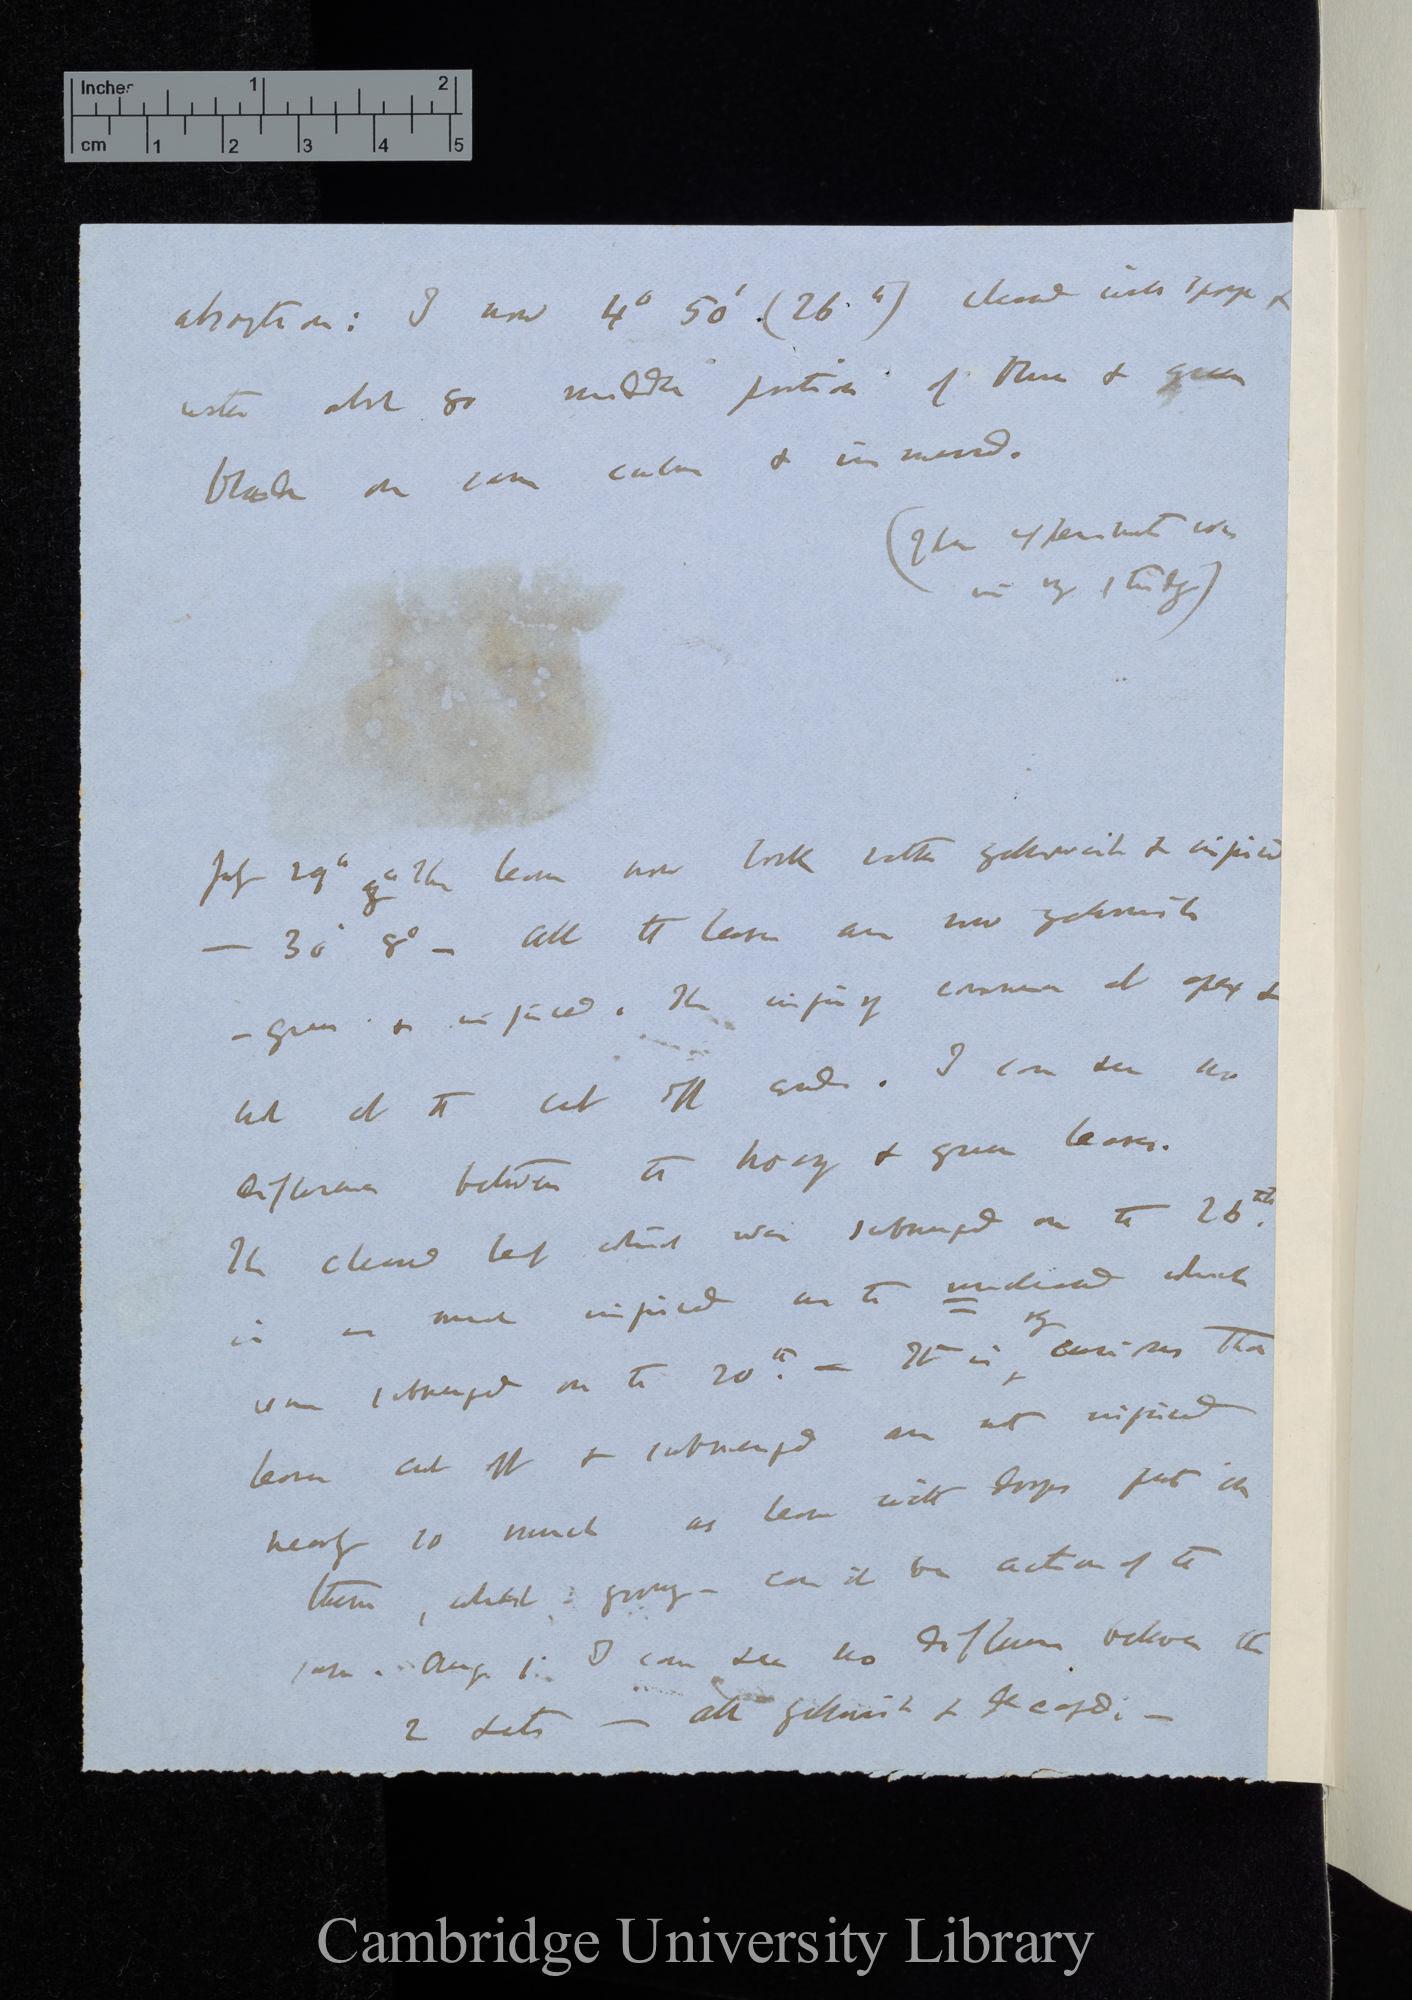 Inches 1 2
cm 1 2 3 4 5
absorption: I now 4° 50' (26.th) cleaned with sponge &
water about 80 middle portion of these & green
on same & immersed.
(These experiments was
in my study)
July 29th 9° The leaves now look rather yellowish & injured
— 30 8° — All the leaves are now yellowish
– green & injured. The injury commences at apex &
and at the cut off ends. I can see no
difference between the hoary & green leaves.
The cleaned leaf which was submerged on the 26th.
is as much injured as the uncleaned which
was submerged on the 20th. — It is, vy curious that
leaves cut off & submerged are not injured
nearly so much as leaves with drops put on
them, whilst growing – can it be action of the
sun. Aug. 1. I can see no difference between the
2 sets — all yellowish & decayed; —
Cambridge University Library